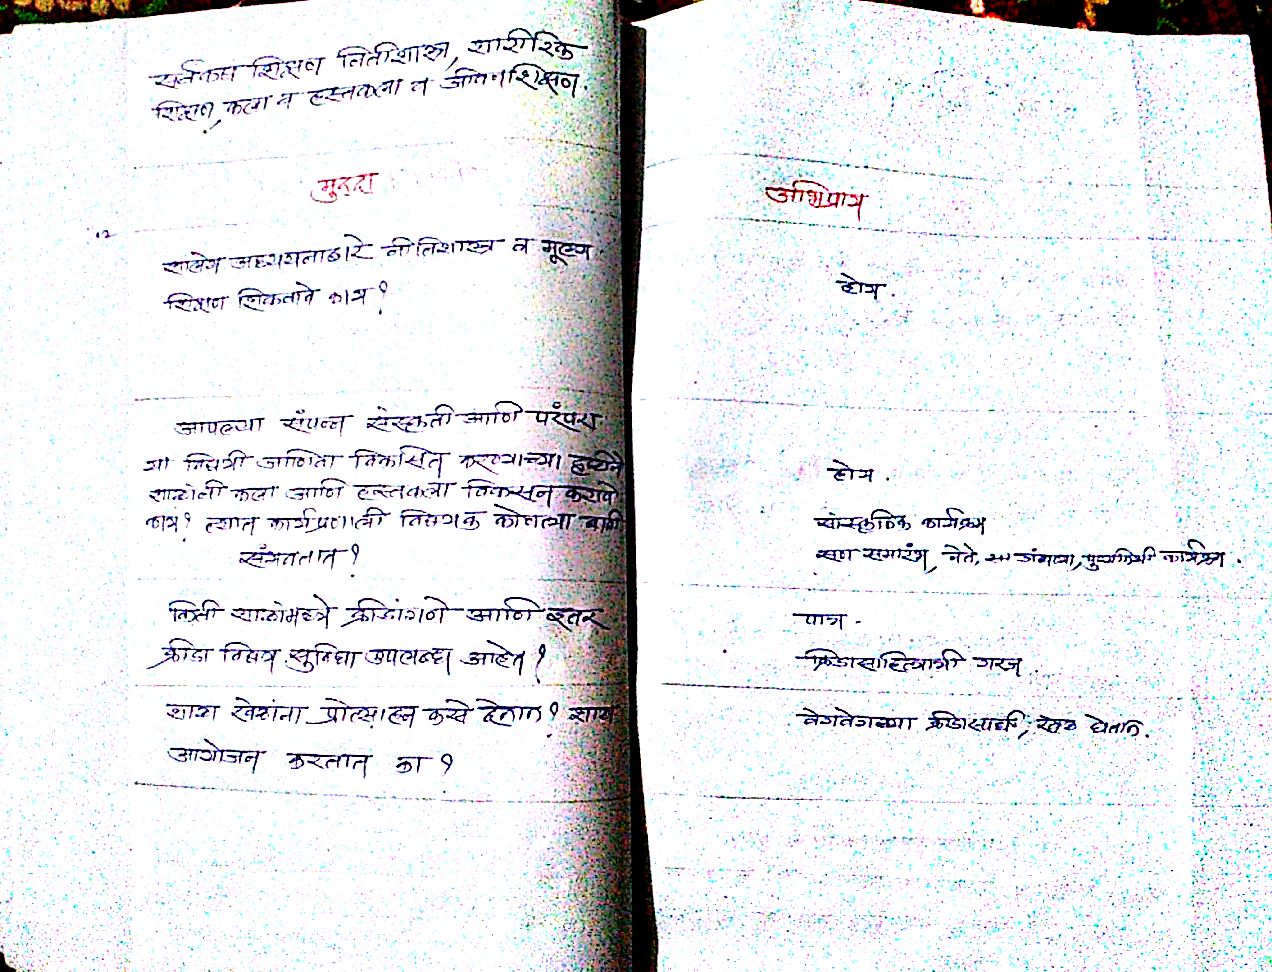 सर्वंकष शिक्षण नितीशास्त्र, शारीरिक
शिक्षण, कला व हस्तकला व जीवन शिक्षण.
मुद्दा
अभिप्राय
शालेय अध्ययनाद्वारे नीतिशास्त्र व मूल्य
शिक्षण शिकतात काय?
होय.
आपल्या संपन्न संस्कृती आणि परंपरा
या विषयी जाणिवा विकसित करण्याच्या दृष्टीने
शाळेनी कला आणि हस्तकला विकसन करावे
काय? त्यात कार्यप्रणाली विषयक कोणत्या बाबी
संभवतात?
होय.
सांस्कृतिक कार्यक्रम
सण समारंभ, नेते, पुण्यतिथी कार्यक्रम.
किती शाळांमध्ये क्रीडांगणे आणि इतर
क्रीडा विषय सुविधा उपलब्ध आहेत?
पाच.
क्रिडासाहित्याची गरज.
शाळा खेळांना प्रोत्साहन कसे देतात?
आयोजन करतात का?
वेगवेगळ्या क्रीडास्पर्धा, खेळ घेतात.